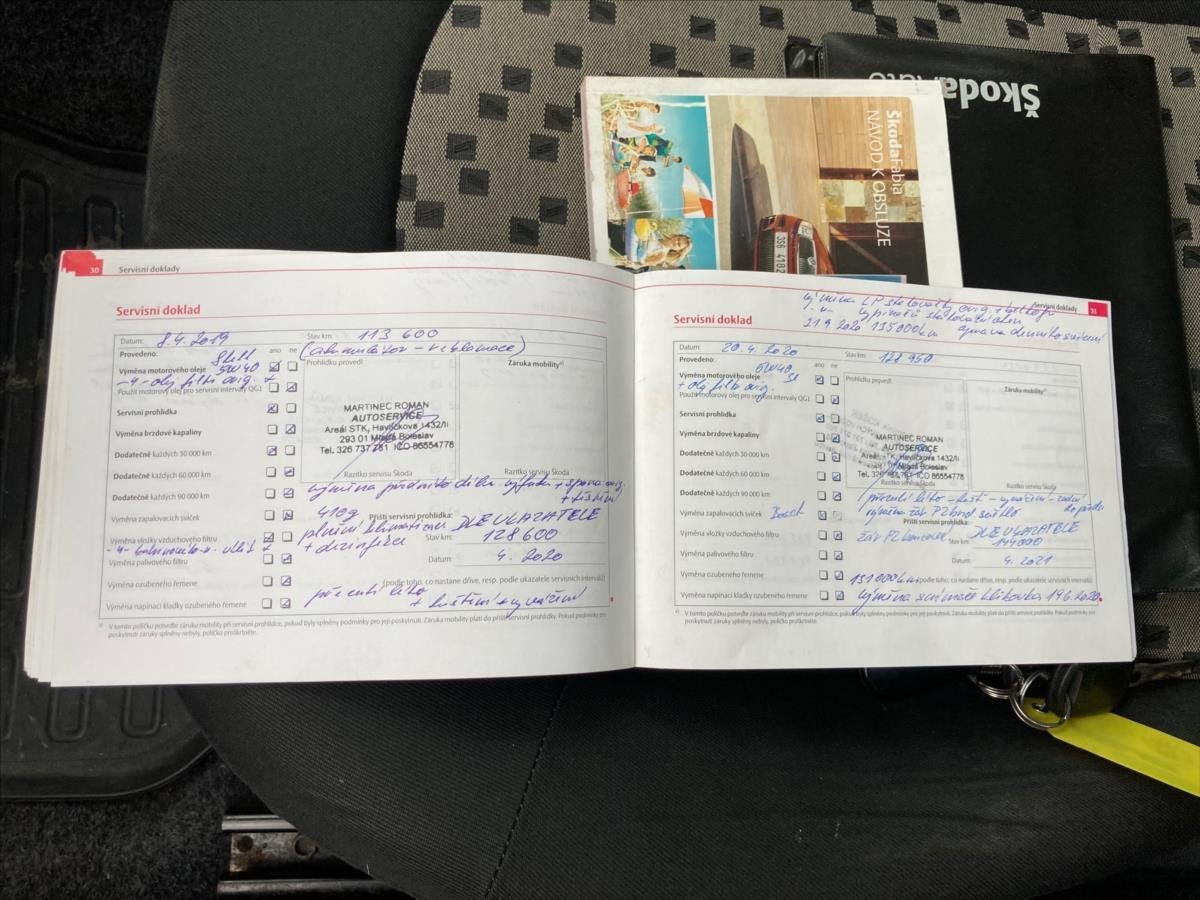 ŠkodaAuto
ŠkodaFabia
NÁVOD K OBSLUZE
3S6 4182
30 Servisní doklady
Servisní doklad
Datum: 8.4.2019 Stav km: 113 600
Provedeno: ano ne
Shell (akumulátor - reklamace)
Výměna motorového oleje 5W40
Prohlídku provedl: Záruka mobility a)
+ olej filtr orig.
Použit motorový olej pro servisní intervaly QG1
Servisní prohlídka
MARTINEC ROMAN
AUTOSERVICE
Areál STK, Havlíčkova 1432/II
293 01 Mladá Boleslav
Tel. 326 737 781 IČO 86554778
Výměna brzdové kapaliny
Dodatečně každých 30 000 km
Dodatečně každých 60 000 km
Razítko servisu Škoda Razítko servisu Škoda
výměna předního dílu výfuku + spona orig.
+ těsnění
Dodatečně každých 90 000 km
Výměna zapalovacích svíček
410g
plnění klimatizace
+ dezinfekce
Příští servisní prohlídka: DLE UKAZATELE
Výměna vložky vzduchového filtru
Stav km: 128 600
Výměna palivového filtru
Datum: 4. 2020
Výměna ozubeného řemene
(podle toho, co nastane dříve, resp. podle ukazatele servisních intervalů)
Výměna napínací kladky ozubeného řemene
přezutí léto
+ čuštění + vyvážení
a) V tomto políčku potvrďte záruku mobility při servisní prohlídce, pokud byly splněny podmínky pro její poskytnutí. Záruka mobility platí do příští servisní prohlídky. Pokud podmínky pro
poskytnutí záruky splněny nebyly, políčko proškrtněte.
Servisní doklady 31
výměna LP stahovačky orig.
21.9.2020 135000km oprava denního svícení
Servisní doklad
Datum: 20.4.2020 Stav km: 122 950
Provedeno: ano ne
Výměna motorového oleje 5W40
Prohlídku provedl: Záruka mobility a)
+ olej filtr orig.
Použit motorový olej pro servisní intervaly QG1
Servisní prohlídka
MARTINEC ROMAN
AUTOSERVICE
Areál STK, Havlíčkova 1432/II
293 01 Mladá Boleslav
Tel. 326 737 781 IČO 86554778
Výměna brzdové kapaliny
Dodatečně každých 30 000 km
Dodatečně každých 60 000 km
Razítko servisu Škoda Razítko servisu Škoda
Dodatečně každých 90 000 km
přezutí léto
Výměna zapalovacích svíček Bosch
Příští servisní prohlídka: DLE UKAZATELE
Výměna vložky vzduchového filtru
Stav km: 144000
Výměna palivového filtru
Datum: 4. 2021
Výměna ozubeného řemene
131000km (podle toho, co nastane dříve, resp. podle ukazatele servisních intervalů)
Výměna napínací kladky ozubeného řemene
výměna snímače klikovka 19.6.2020
a) V tomto políčku potvrďte záruku mobility při servisní prohlídce, pokud byly splněny podmínky pro její poskytnutí. Záruka mobility platí do příští servisní prohlídky. Pokud podmínky pro
poskytnutí záruky splněny nebyly, políčko proškrtněte.